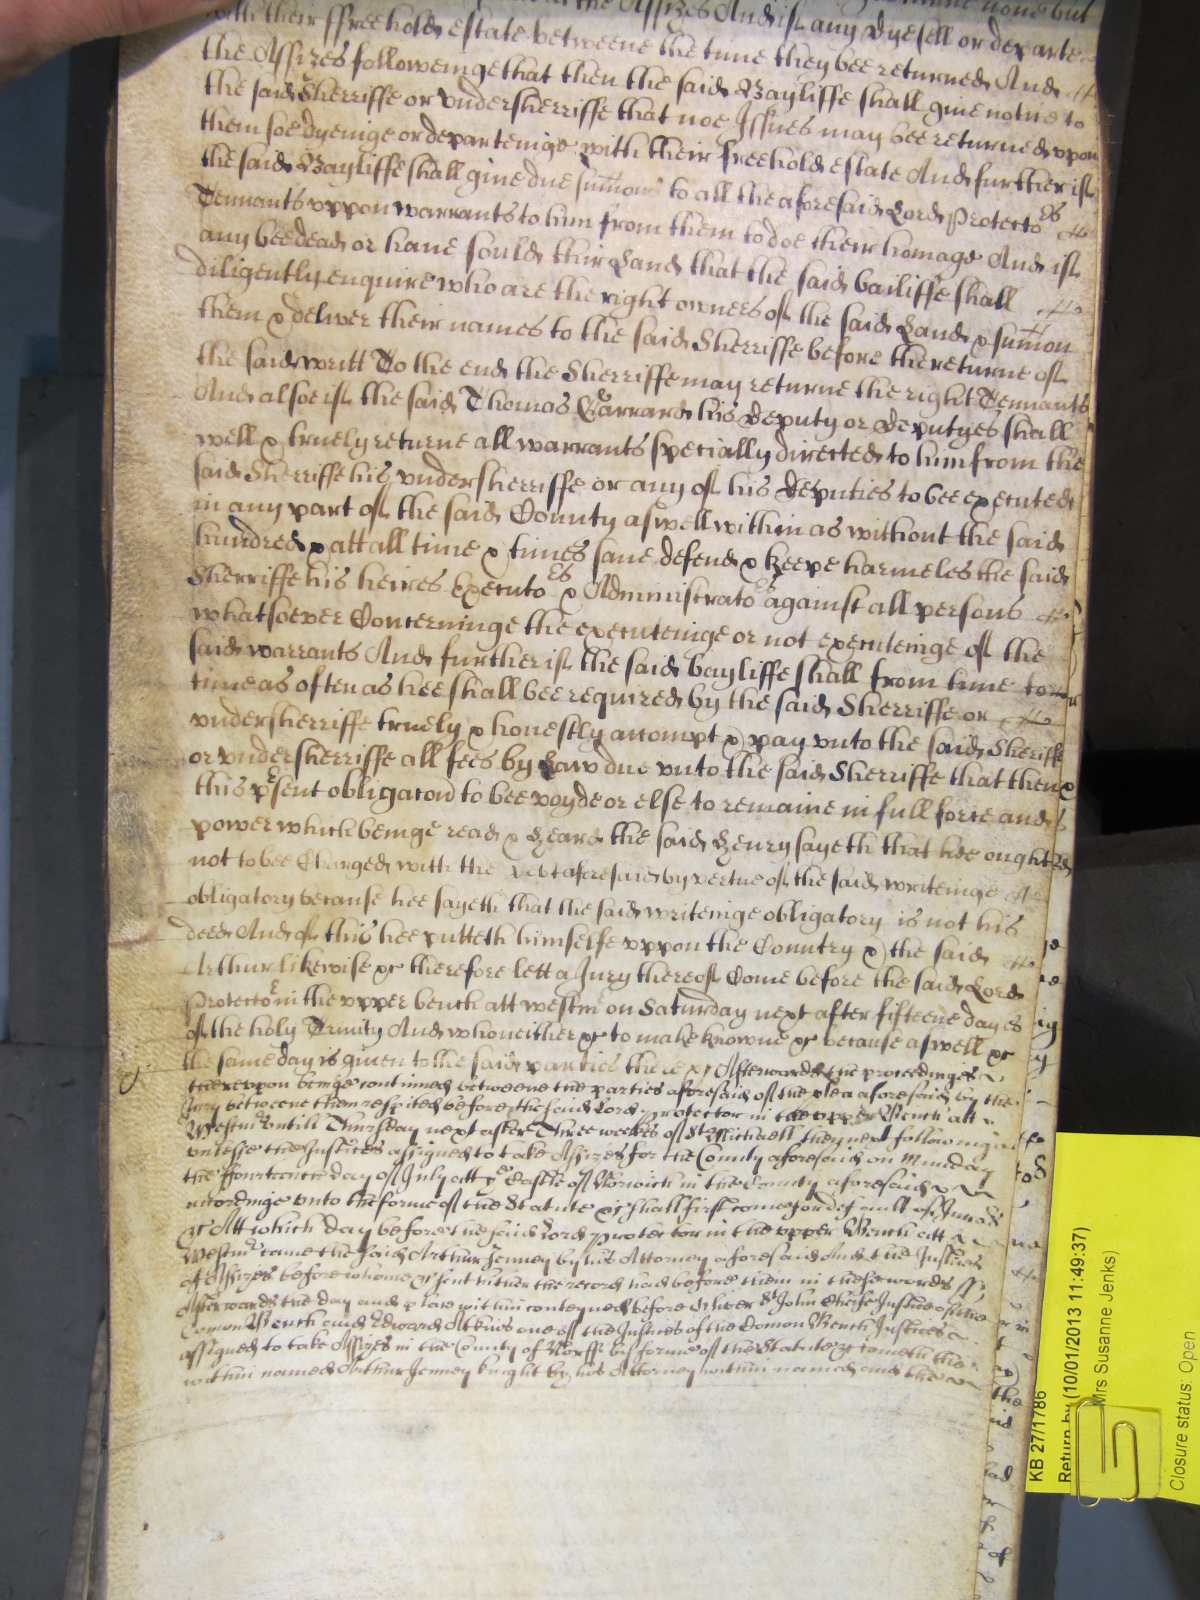 at the Assizes And if any none but
with their ffreehold estate betweene the time they bee returned And
the Assizes followeinge that then the said Bayliffe shall giue notice to
the said Sherriffe or vndersherriffe that noe Issues may bee returned vpon
them soe dyeinge or departeinge with their freehold estate And further if
the said Bayliffe shall giue due sumons to all the aforesaid Lord Protectors
Tennants vppon warrants to him from them to doe their homage And if
any bee dead or haue sould thir Land that the said bailiffe shall
diligently enquire who are the right owners of the said Land & sumon
them & deliver their names to the said Sherriffe before the returne of
the said writt To the end the Sherriffe may returne the right Tennants
And alsoe if the said Thomas Garrard his deputy or deputyes shall
well & truely returne all warrants specially directed to him from the
said Sherriffe his vndersherriffe or any of his deputies to bee executed
in any part of the said County aswell within as without the said
hundred & att all time & times saue defend & keepe harmeles the said
Sherriffe his heires Executors & Administrators against all persons
whatsoever Concerninge the executeinge or not executeinge of the
said warrants And further if the said bayliffe shall from time to
time as often as hee shall bee required by the said Sherriffe or
vndersherriffe truely & honestly accompt & pay vnto the said Sheriffe
or vndersherriffe all fees by Law due vnto the said Sherriffe that then
this psent obligacon to bee voyde or else to remaine in full force and
power which beinge read & heard the said Henry sayeth that hee ought
not to bee Charged with the Debt aforesaid by vertue of the said writeinge
obligatory because hee sayeth that the said writeinge obligatory is not his
deed And of this hee putteth himselfe vppon the Country & the said
Arthur likewise &c therefore lett a Jury thereof Come before the said Lord
Protector in the vpper bench att westmr on Saturday next after fifteene dayes
of the holy Trinity And who neither &c to make knowne &c because aswell &c
the same day is giuen to the said parties there &c Afterwards the proceedinges
therevpon beinge continued betweene the parties aforesaid of the plea aforesaid by the
Jury betweene them respited before the said Lord Protector in the vpper Bench att
Westmr vntill Thursday next after Three weekes of St Michaell then next followinge
vnlesse the Justices assigned to take Assizes for the County aforesaid on Munday
the ffourteenth day of July att ye Castle of Norwich in the County aforesaid
accordinge vnto the forme of the Statute &c shall first come for default of Jurors
&c Att which day before the said Lord Protector in the vpper Bench att
Westmr came the said Arthur Jenney by his Attorney aforesaid And the Justices
of Assizes before whome &c sent hither the record had before them in these words
Afterwards the day and place within conteyned before Oliver St John Cheife Justice of the
Comon Bench and Edward Atkins one of the Justices of the Comon Bench Justices
assigned to take Assizes in the County of Norff by forme of the Statute &c cometh the
within named Arthur Jenney knight by his Attorney within named and the
KB 27/1786
Return by (10/01/2013 11:49:37)
Mrs Susanne Jenks)
Closure status: Open